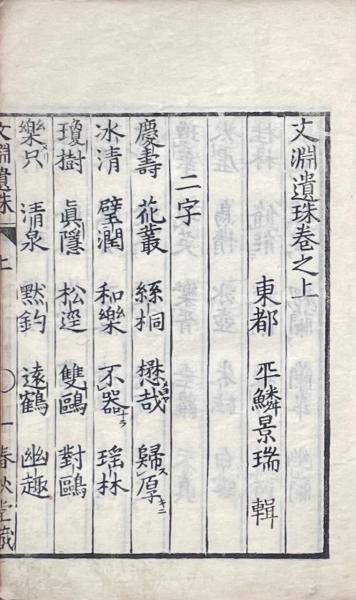 文淵遺珠卷之上
東都 平鱗景瑞 輯
二字
慶壽 花叢 絲桐 懋哉 歸厚
冰清 璧潤 和樂 不器 瑤林
瓊樹 眞隱 松逕 雙鷗 對鷗
樂只 清泉 默釣 遠鶴 幽趣
文淵遺珠 上 一 春秋堂藏